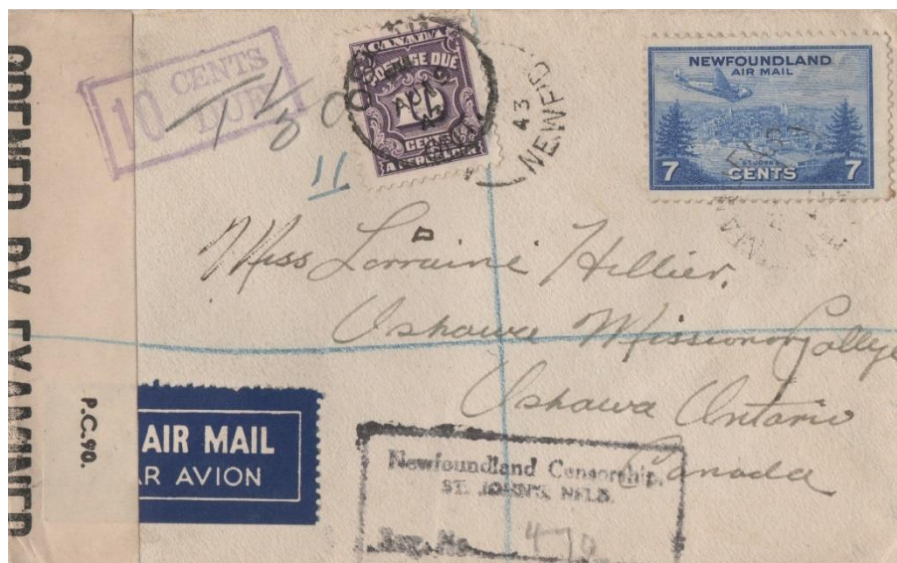 OPENED BY EXAMINER
P.C. 90.
10 CENTS
DUE
11
CANADA
POSTAGE DUE
CENTS
43
NEWF'D
NEWFOUNDLAND
AIR MAIL
ST. JOHN'S
7 CENTS 7
Miss Lorraine Hillier,
Oshawa Missionary College
Oshawa Ontario
Canada
AIR MAIL
AR AVION
Newfoundland Censorship,
ST. JOHN'S, NFLD.
Reg. No. 470